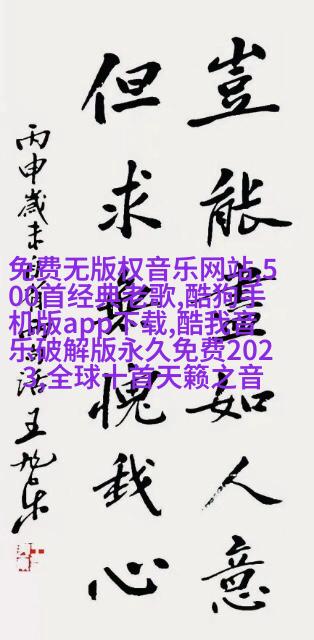 豈能盡如人意
但求無愧我心
丙申歲末
免费无版权音乐网站,5
00首经典老歌,酷狗手
机版app下载,酷我音
乐破解版永久免费202
3,全球十首天籁之音